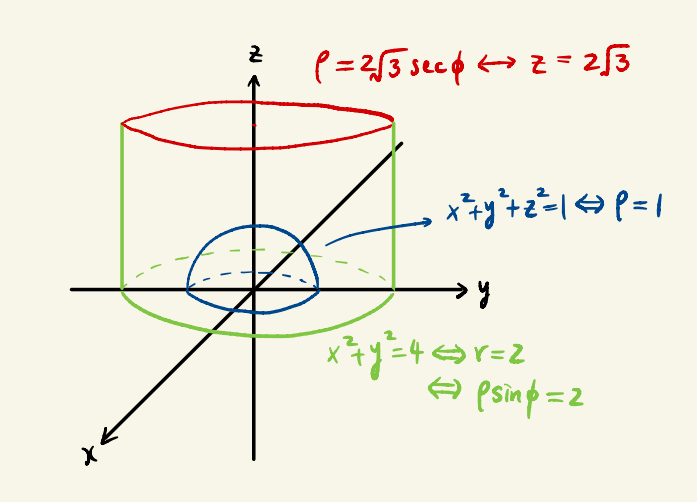 z
ρ = 2√3 sec ϕ ↔ z = 2√3
x²+y²+z²=1 ⇔ ρ = 1
y
x²+y²=4 ⇔ r=2
⇔ ρsinϕ=2
x